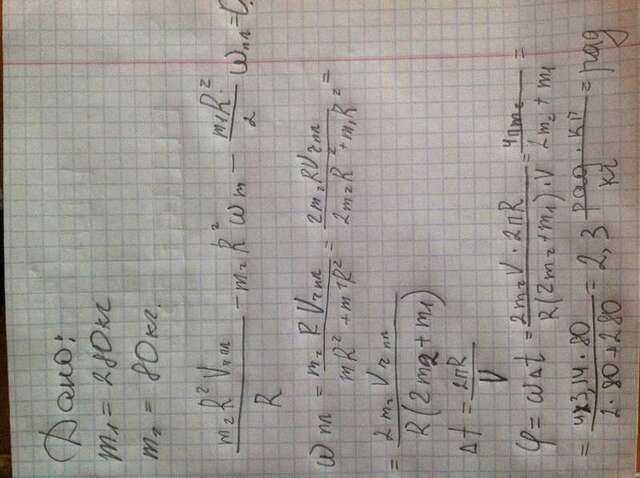 Дано:
m₁ = 280 кг
m₂ = 80 кг.
m₂R²V₂пл / R − m₂R²ωm − m₁R²/2 ωпл = 0
ωm = m₂RV₂пл / mR² + m1R² = 2m₂RV₂пл / 2m₂R² + m₁R² =
= 2m₂V₂пл / R(2m2 + m₁)
Δt = 2πR / V
φ = ωΔt = 2m₂V · 2πR / R(2m₂ + m₁) · V = 4πm₂ / 2m₂ + m₁ =
= 4×3,14 · 80 / 2 · 80 + 280 = 2,3 рад · кг / кг = рад